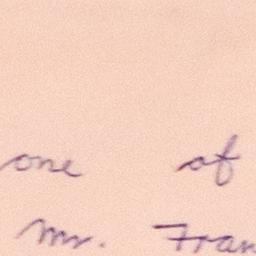 one of
Mr. Fran